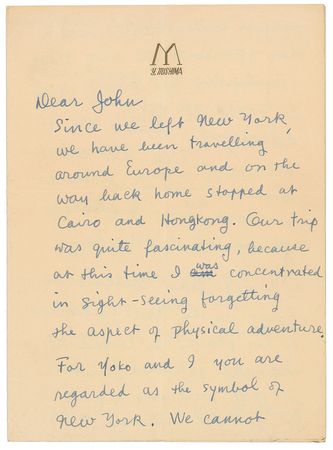 M
Y. MISHIMA
Dear John
Since we left New York,
we have been travelling
around Europe and on the
way back home stopped at
Cairo and Hongkong. Our trip
was quite fascinating, because
at this time I was concentrated
in sight-seeing forgetting
the aspect of physical adventure.
For Yoko and I you are
regarded as the symbol of
New York. We cannot